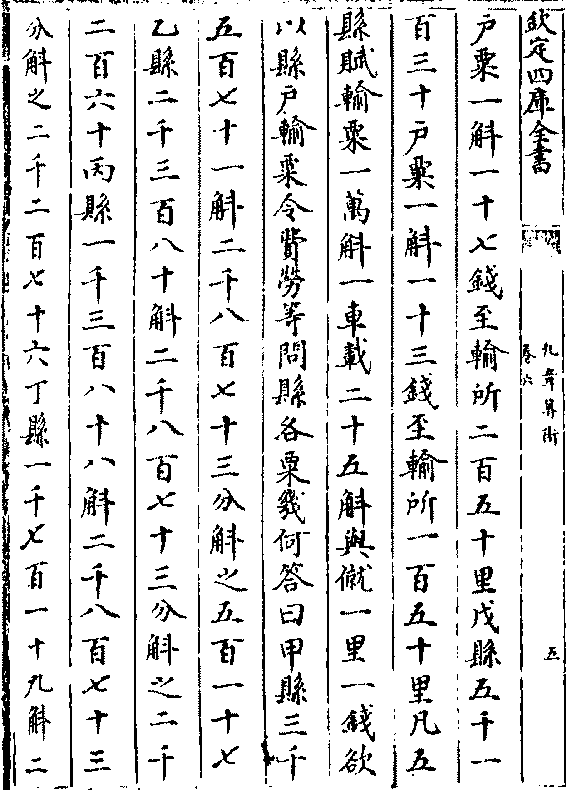 欽定四庫全書
九章算術
卷六
五
戶粟一斛一十七錢至輸所二百五十里戊縣五千一
百三十戶粟一斛一十三錢至輸所一百五十里凡五
縣賦輸粟一萬斛一車載二十五斛與僦一里一錢欲
以縣戶輸粟令費勞等問縣各粟幾何答曰甲縣三千
五百七十一斛二千八百七十三分斛之五百一十七
乙縣二千三百八十斛二千八百七十三分斛之二千
二百六十丙縣一千三百八十八斛二千八百七十三
分斛之二千二百七十六丁縣一千七百一十九斛二